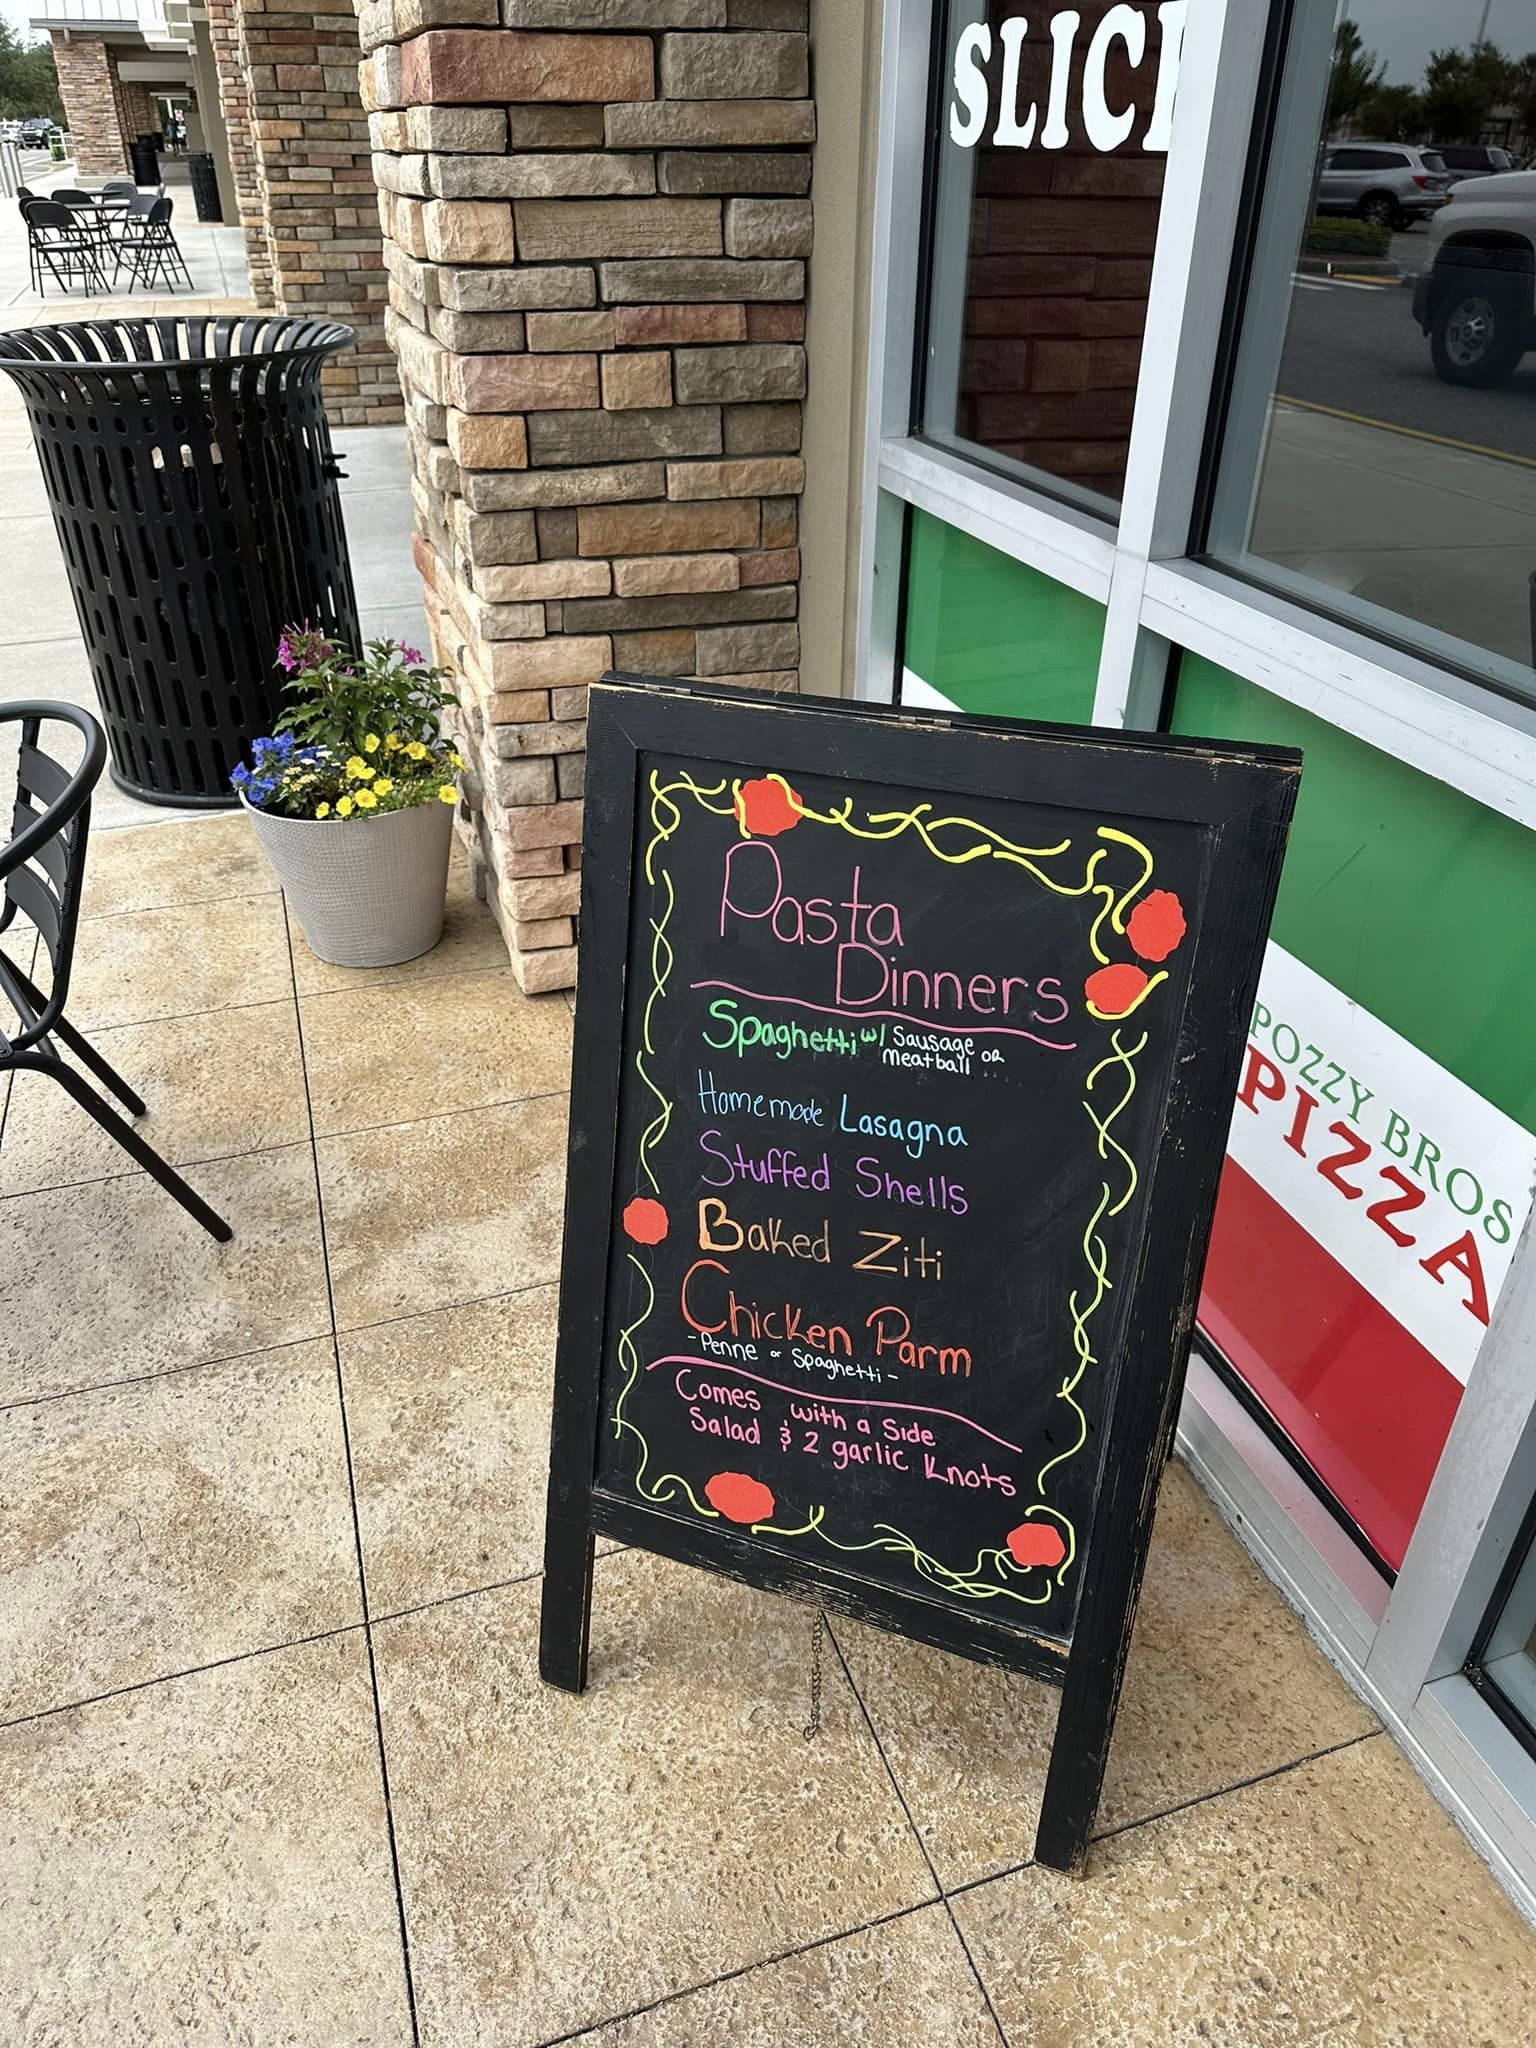 SLICE
Pasta
Dinners
Spaghetti w/ Sausage or
meatball
Homemade Lasagna
Stuffed Shells
Baked Ziti
Chicken Parm
- Penne or Spaghetti -
Comes with a Side
Salad & 2 garlic Knots
POZZY BROS
PIZZA